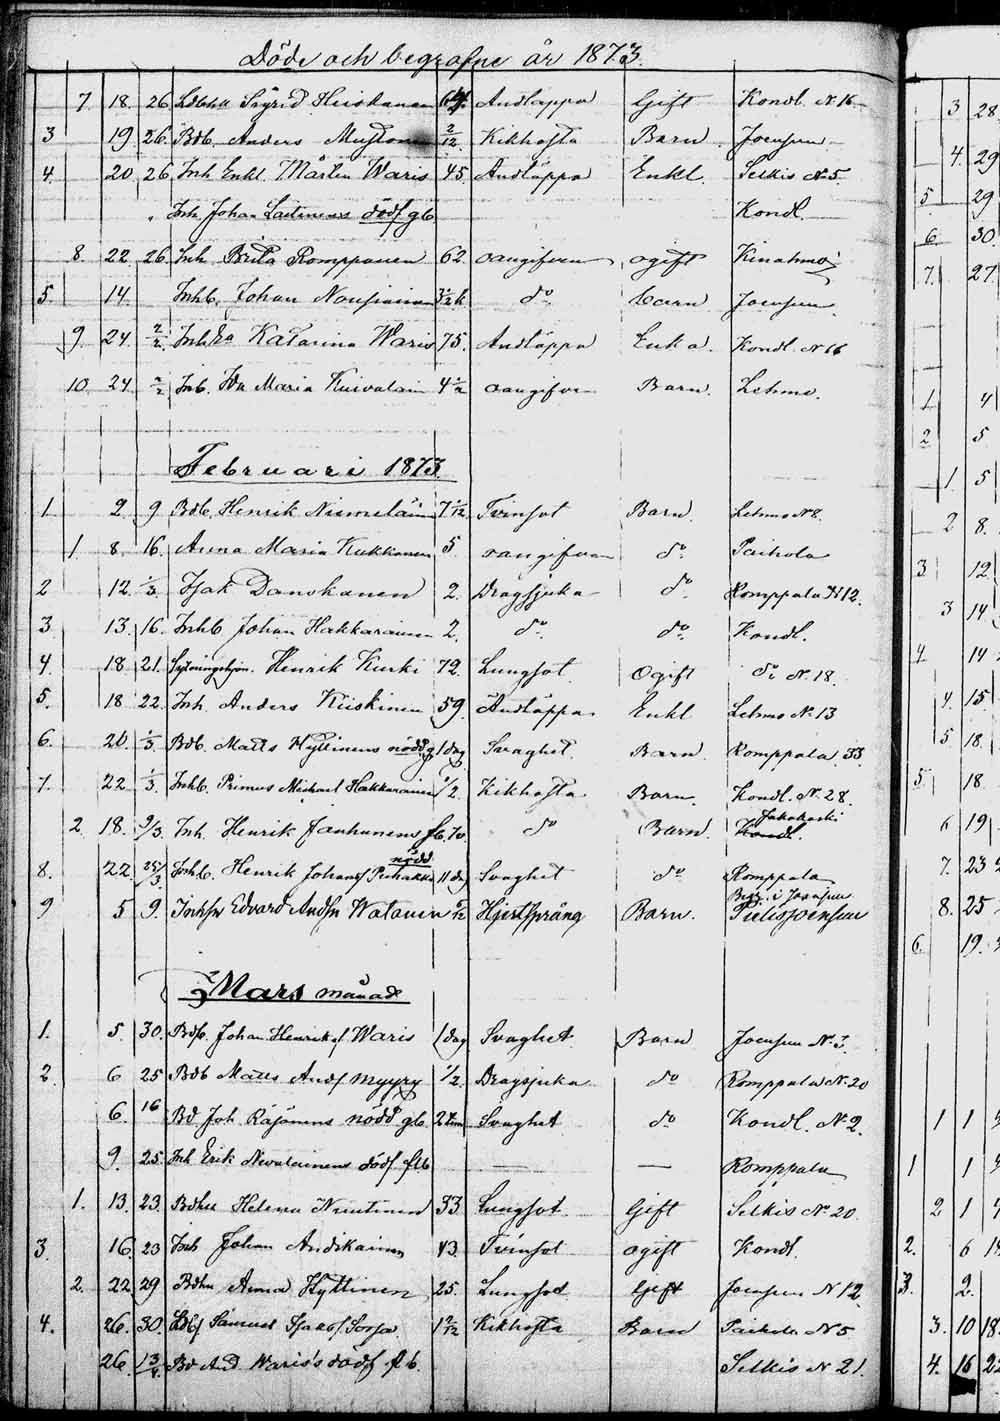 Döde och begrafne år 1873.
7 18. 26 Sigrid Hiiskanen Andtäppa Gift Kondl. N. 16
3 19 26. Bdb. Anders 2/12 Kikhosta Barn Joensuu
4. 20 26 Inh. Enkl. Mårten Waris 45 Andtäppa Enkl. Selkis N. 5.
Inh. Johan Laitinens dödf. gb. Kondl.
8. 22 26. Inh. Brita Romppanen 62. oangifven ogift Kinahmo
5 14 Inhb. Johan do barn Joensuu
9. 24 2/2 Inh. Ea Katarina Waris 75. Andtäppa Enka. Kondl. N 16
10. 24 2/2 Inb. Ida Maria Kuivalain 4 1/2 oangifven Barn. Lehmo.
Februari 1873.
1 2 9 Bdb. Henrik Niemeläinen 7/12 Tvinsot Barn Lehmo N 8.
1 8 16. Anna Maria Kukkonen 5 oangifven do Paihola
2 12. 1/3. Isak Danskanen 2. Dragsjuka do Romppala N 12.
3 13. 16. Inhb. Johan Hakkarainen 2. do do Kondl.
4. 18 21. Sytningshjon. Henrik Kurki 72. Lungsot Ogift do N. 18.
5. 18 22. Inh. Anders Kiiskinen 59. Andtäppa Enkl Lehmo N. 13
6. 20. 1/3. Bdb. Matts Hyttinens nödd. g. 1 dag Svaghet Barn Romppala 33.
7. 22 1/3. Inhb. Primus Michael Hakkarainen 1/2. Kikhosta Barn. Kondl. N. 28.
2 18. 9/3. Inh. Henrik Jauhunens fb. do Barn. Jakokoski
8. 22. 25/3. Inhb. Henrik Johansf. Puhakka nödd. 11 dag Svaghet do Romppala
9 5 9. Edvard Andsn Watanen Hjertsprång Barn. Begr. i Joensuu Pielisjoensuu
Mars månad
1. 5. 30. Bds. Johan Henriksf. Waris 1 dag Svaghet Barn Joensuu N. 3.
2. 6 25 Bdb Matts Andf. Myyry 1/2. Dragsjuka do Romppala N. 20
6. 16 Bd Joh. Räsänens nödd. gb. 2 tim Svaghet do Kondl. N. 2.
9. 25. Inh Erik Nevalainens dödf. flb — — Romppala
1. 13. 23. Bdhu Helena Nuutinen 33 Lungsot Gift Selkis N. 20.
3. 16. 23 Inh Johan Andikainen 43. Tvinsot ogift Kondl.
2. 22 29 Bdhu Anna Hyttinen 25. Lungsot Gift Joensuu N 12.
4. 26. 30. Samuel Isaksf. Sorsa 1 2/12 Kikhosta Barn Paihola N 5
26. 13/4. Bd And. Waris's dödf. fb. Selkis N 21.
3 28
4. 29
5 29
6 30
7. 27
1 4
2 5
1. 5
2 8.
3 12
3 14
4 14
4. 15
5 18.
5 18
6 19
7. 23
8. 25
6. 19.
1 1
1 1
2 1
2. 6
3. 2.
3. 10 18
4. 16